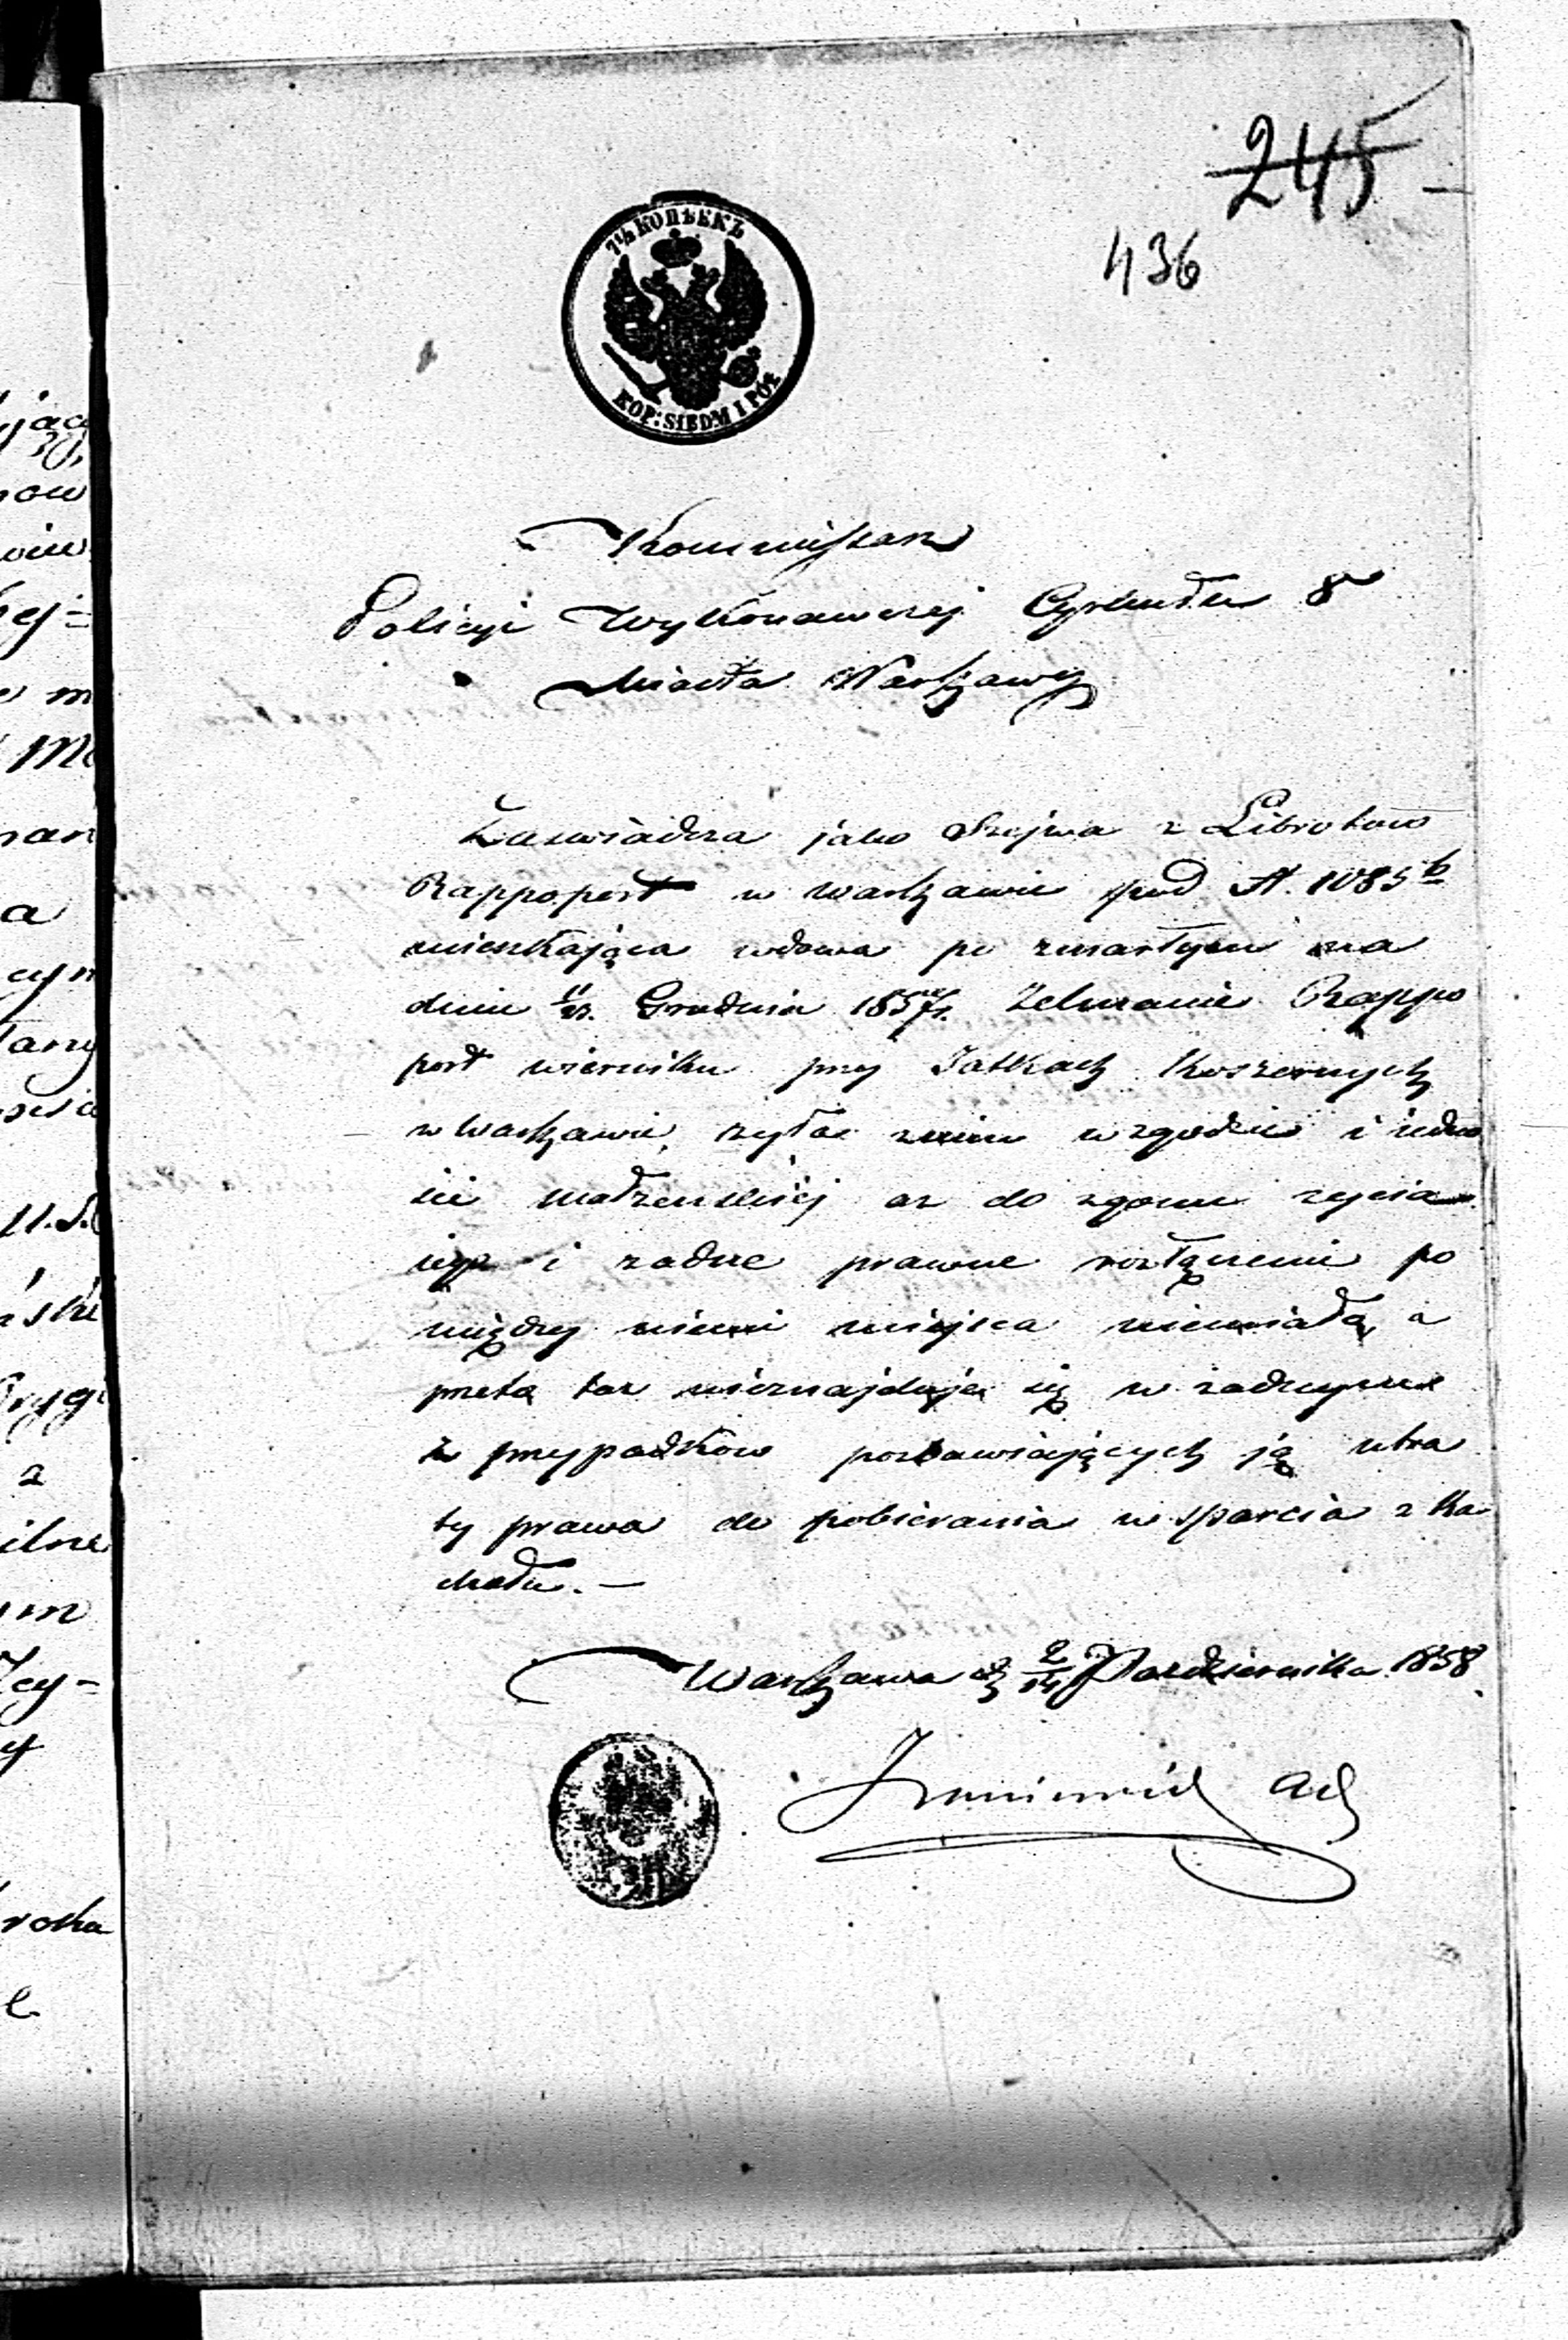 245
436
7½ КОПѢЕКЪ
KOP: SIEDM I PÓŁ
Kommissarz
Policyi Wykonawczej Cyrkułu 8
Miasta Warszawy
Zaswiadcza jako Szejwa z Librotow
Rappoport w Warszawie pod N. 1085 b
mieszkająca wdowa po zmarłym na
dniu 11/23. Grudnia 1857 r. Zelmanie Rappo
port wierniku przy Jatkach Koszernych
w Warszawie, życia z nim w zgodzie i jedno
sci małżenskiej az do zgonu zycia
jego i zadne prawne rozłączenie po
między niemi miejsca niemiało, a
przeto taz nieznajduje się w zadnym
z przypadkow pozbawiających ją utra
ty prawa do pobierania wsparcia z Ka
hału. —
Warszawa d 2/14 Pazdziernika 1858